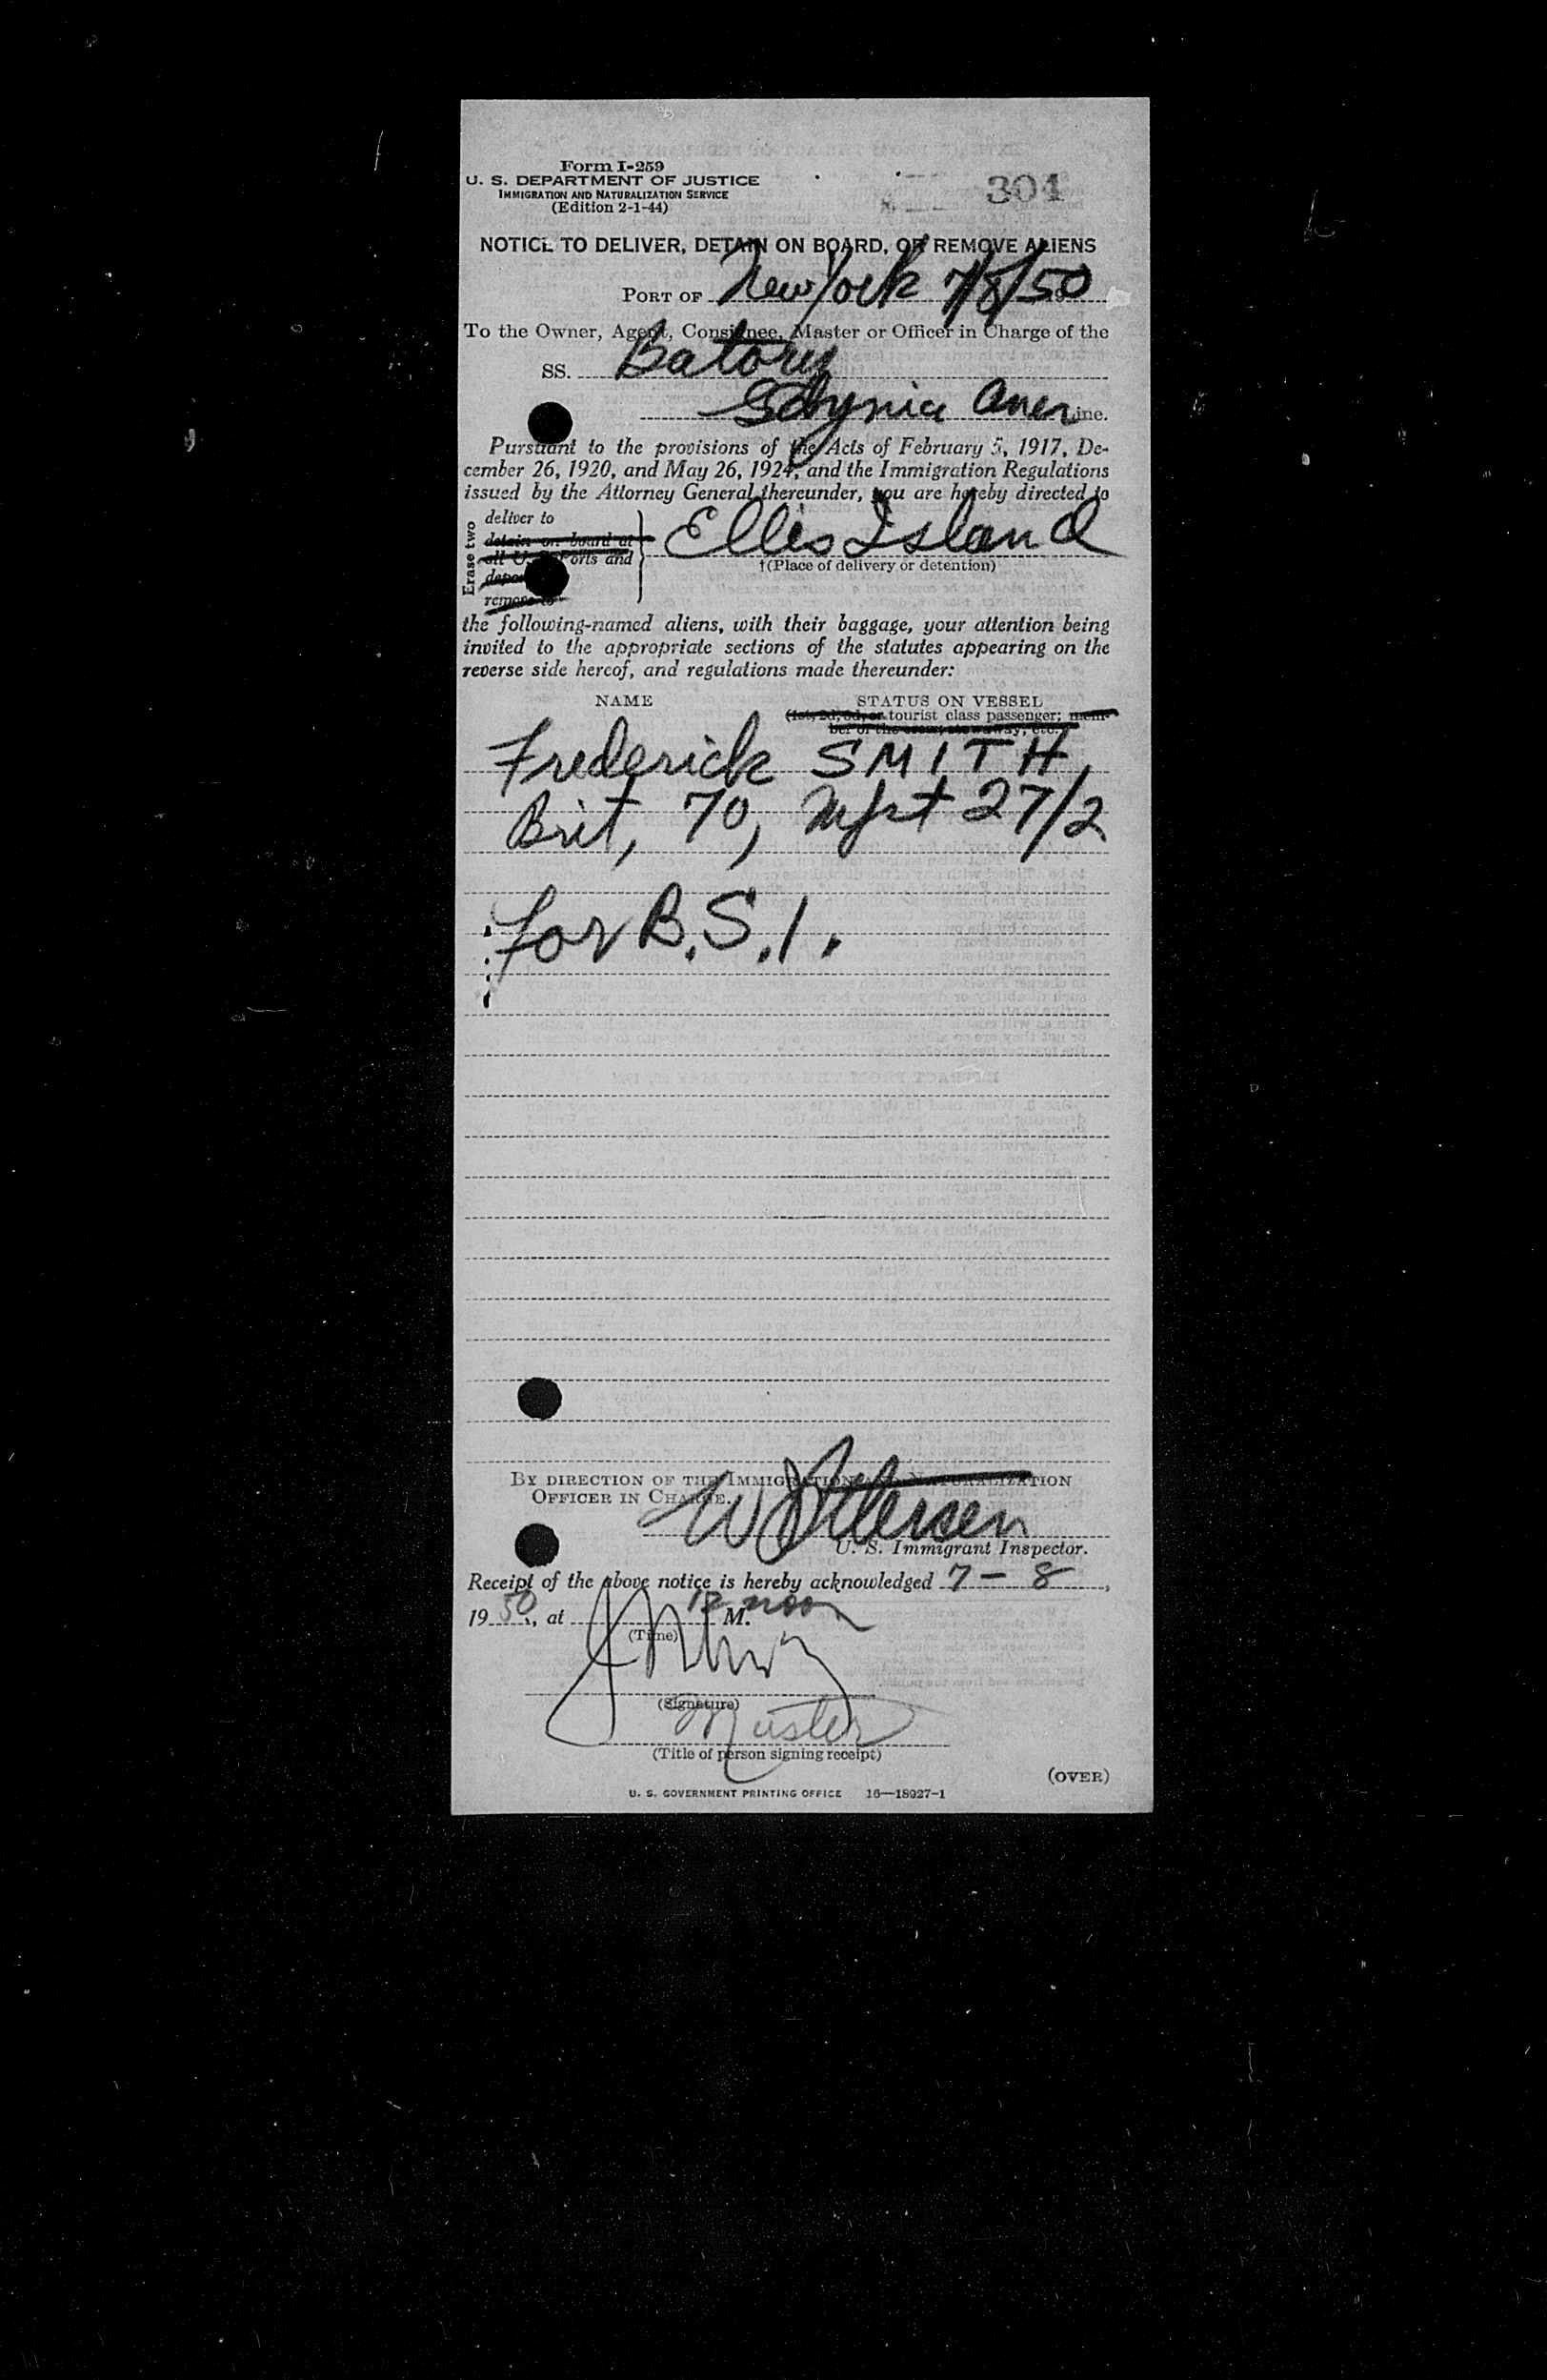 Form I-259
U. S. DEPARTMENT OF JUSTICE
IMMIGRATION AND NATURALIZATION SERVICE
(Edition 2-1-44)
304
NOTICE TO DELIVER, DETAIN ON BOARD, OR REMOVE ALIENS
PORT OF New York 7/8/50
To the Owner, Agent, Consignee, Master or Officer in Charge of the
SS. Batory
Gdynia Amer Line.
Pursuant to the provisions of the Acts of February 5, 1917, De-
cember 26, 1920, and May 26, 1924, and the Immigration Regulations
issued by the Attorney General thereunder, you are hereby directed to
Erase two
deliver to
detain on board at
all U. S. Ports and
remove to
Ellis Island
†(Place of delivery or detention)
the following-named aliens, with their baggage, your attention being
invited to the appropriate sections of the statutes appearing on the
reverse side hereof, and regulations made thereunder:
NAME STATUS ON VESSEL
(1st, 2d, 3d, or tourist class passenger; mem-
ber of the crew, stowaway, etc.)
Frederick SMITH,
Brit, 70, Mfst 27/2
for B.S.I.
BY DIRECTION OF THE IMMIGRATION AND NATURALIZATION
OFFICER IN CHARGE.
U. S. Immigrant Inspector.
Receipt of the above notice is hereby acknowledged 7 - 8,
1950, at 12 M. noon
(Time)
(Signature)
Master
(Title of person signing receipt)
(OVER)
U. S. GOVERNMENT PRINTING OFFICE 16—18927-1